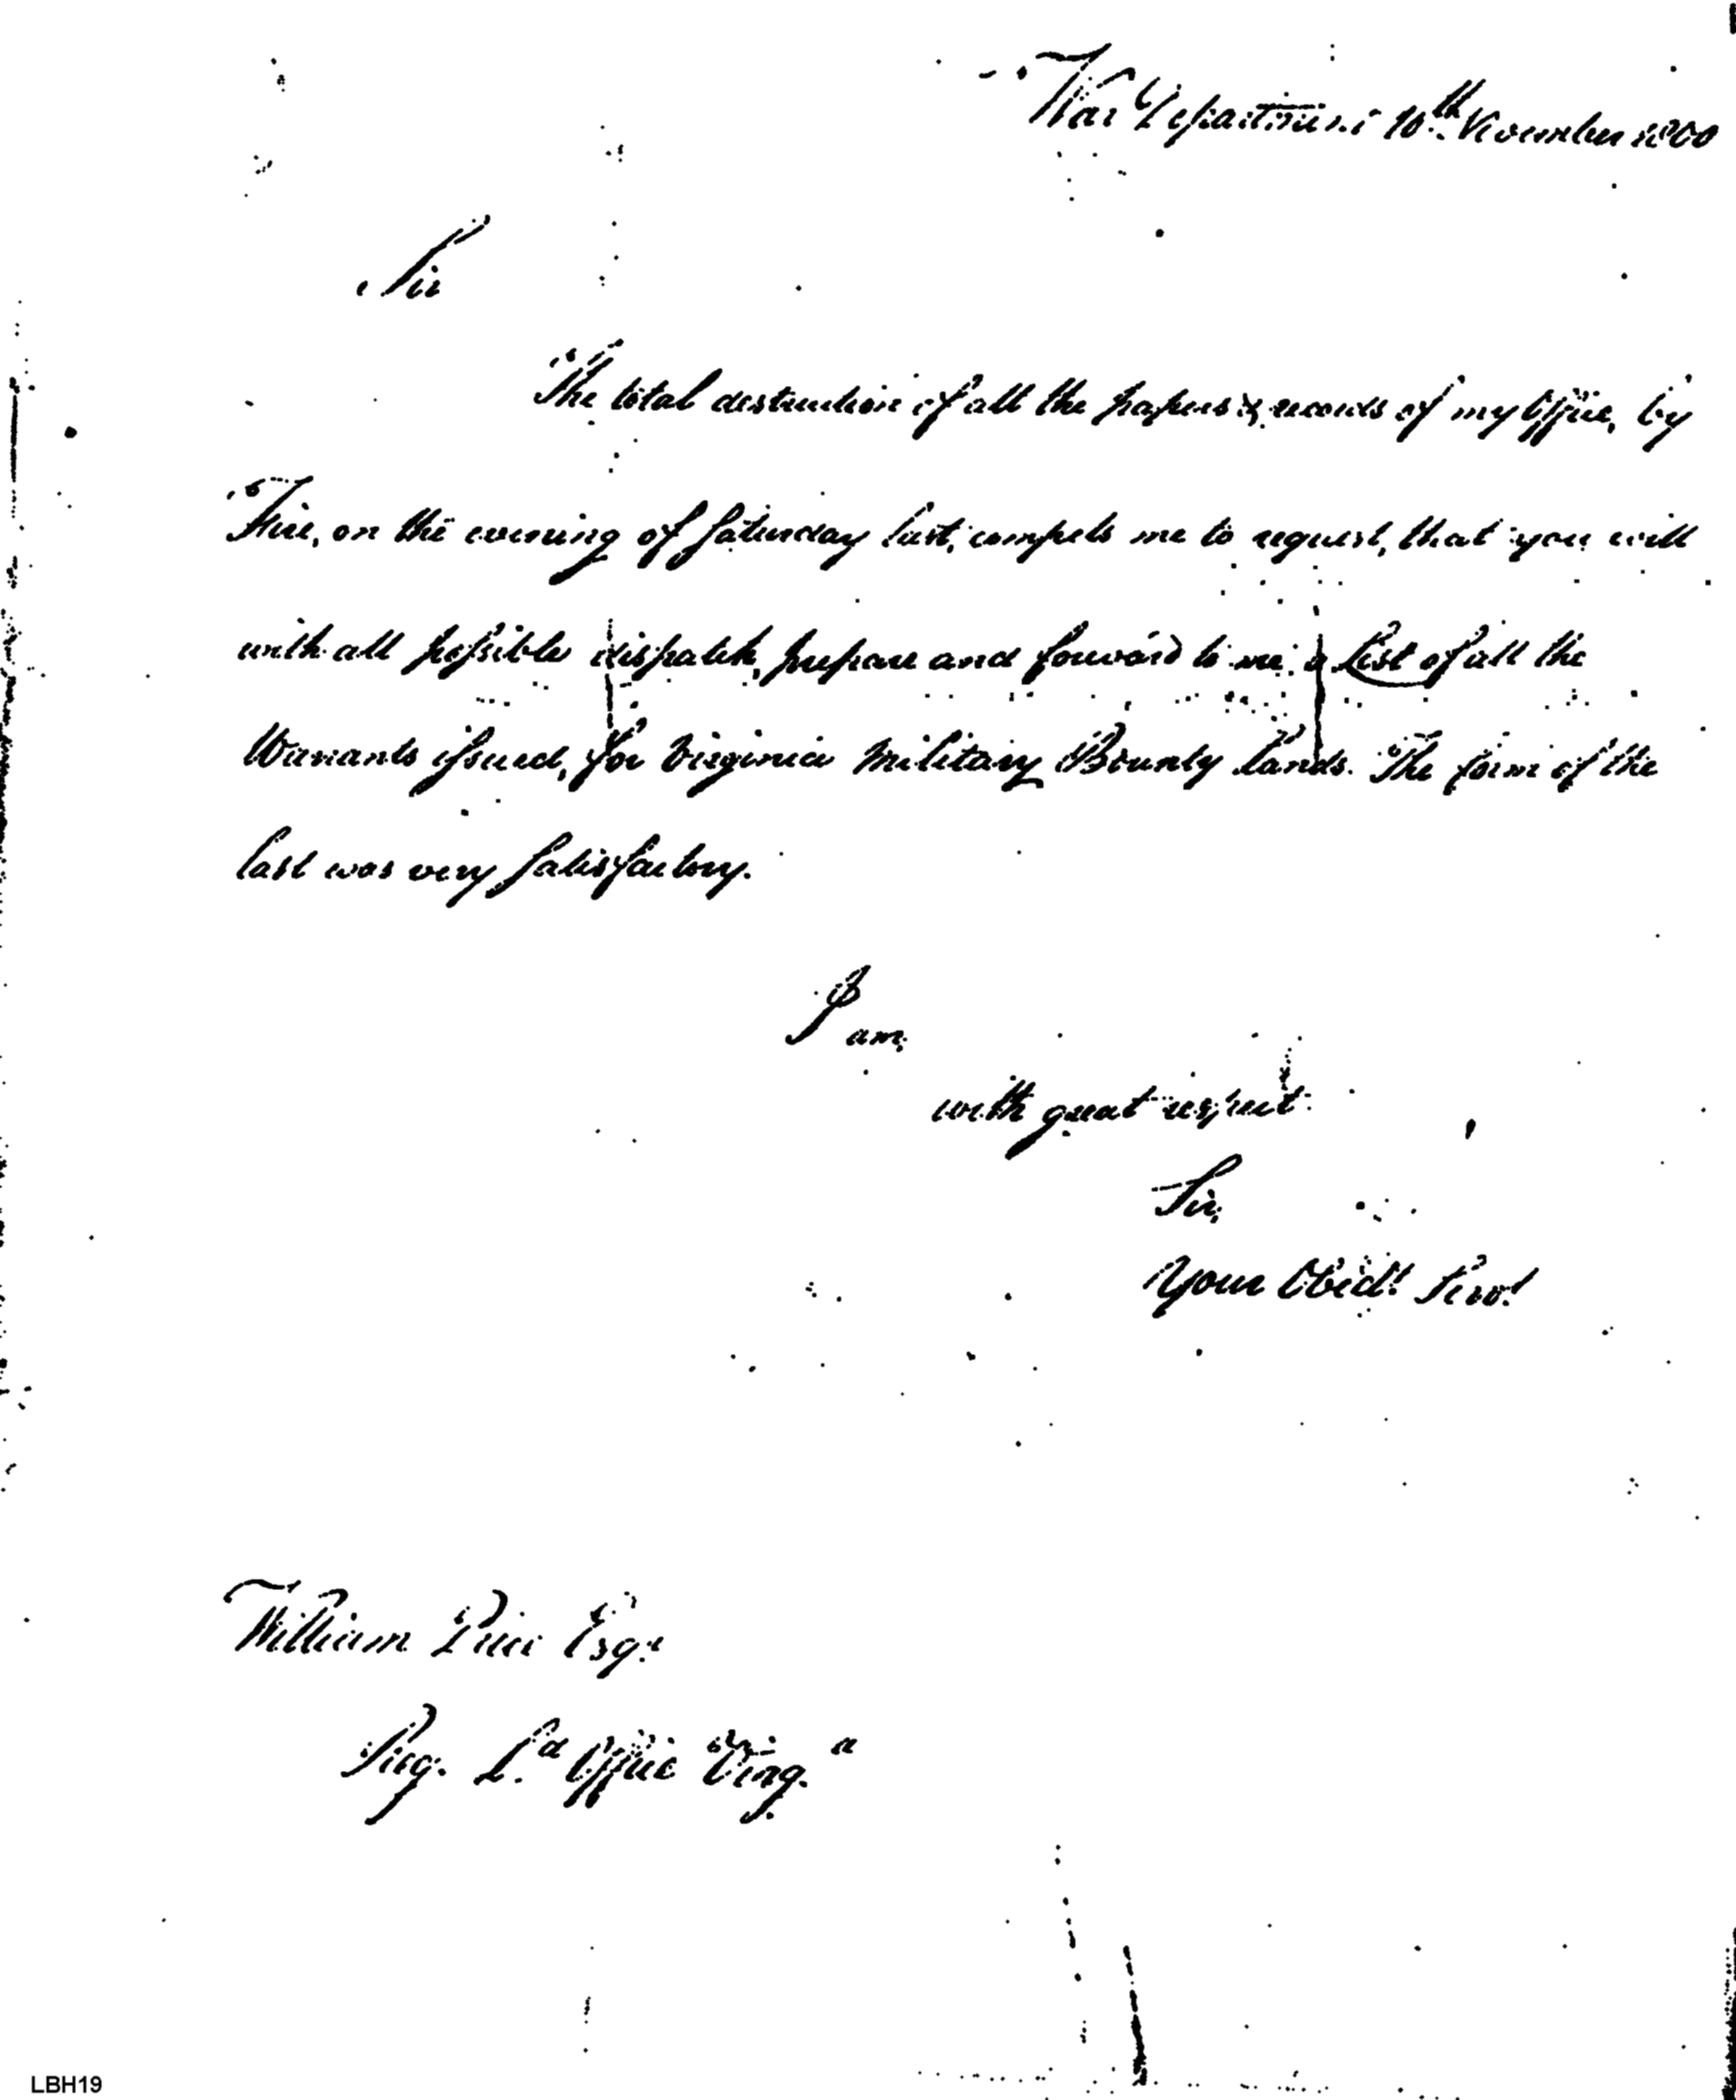 War Department 10th November 1800
Sir
The total destruction of all the papers & records of my Office, by
Fire, on the evening of Saturday last, compels me to request, that you will
with all possible dispatch, prepare and forward to me a List of all the
Warrants issued, for Virginia Military Bounty Lands. The form of the
last was very satisfactory.
I am,
with great respect
Sir,
Your Obedt. Servt.
William Price Esqr.
Reg. Ld. Office Virga.
LBH19